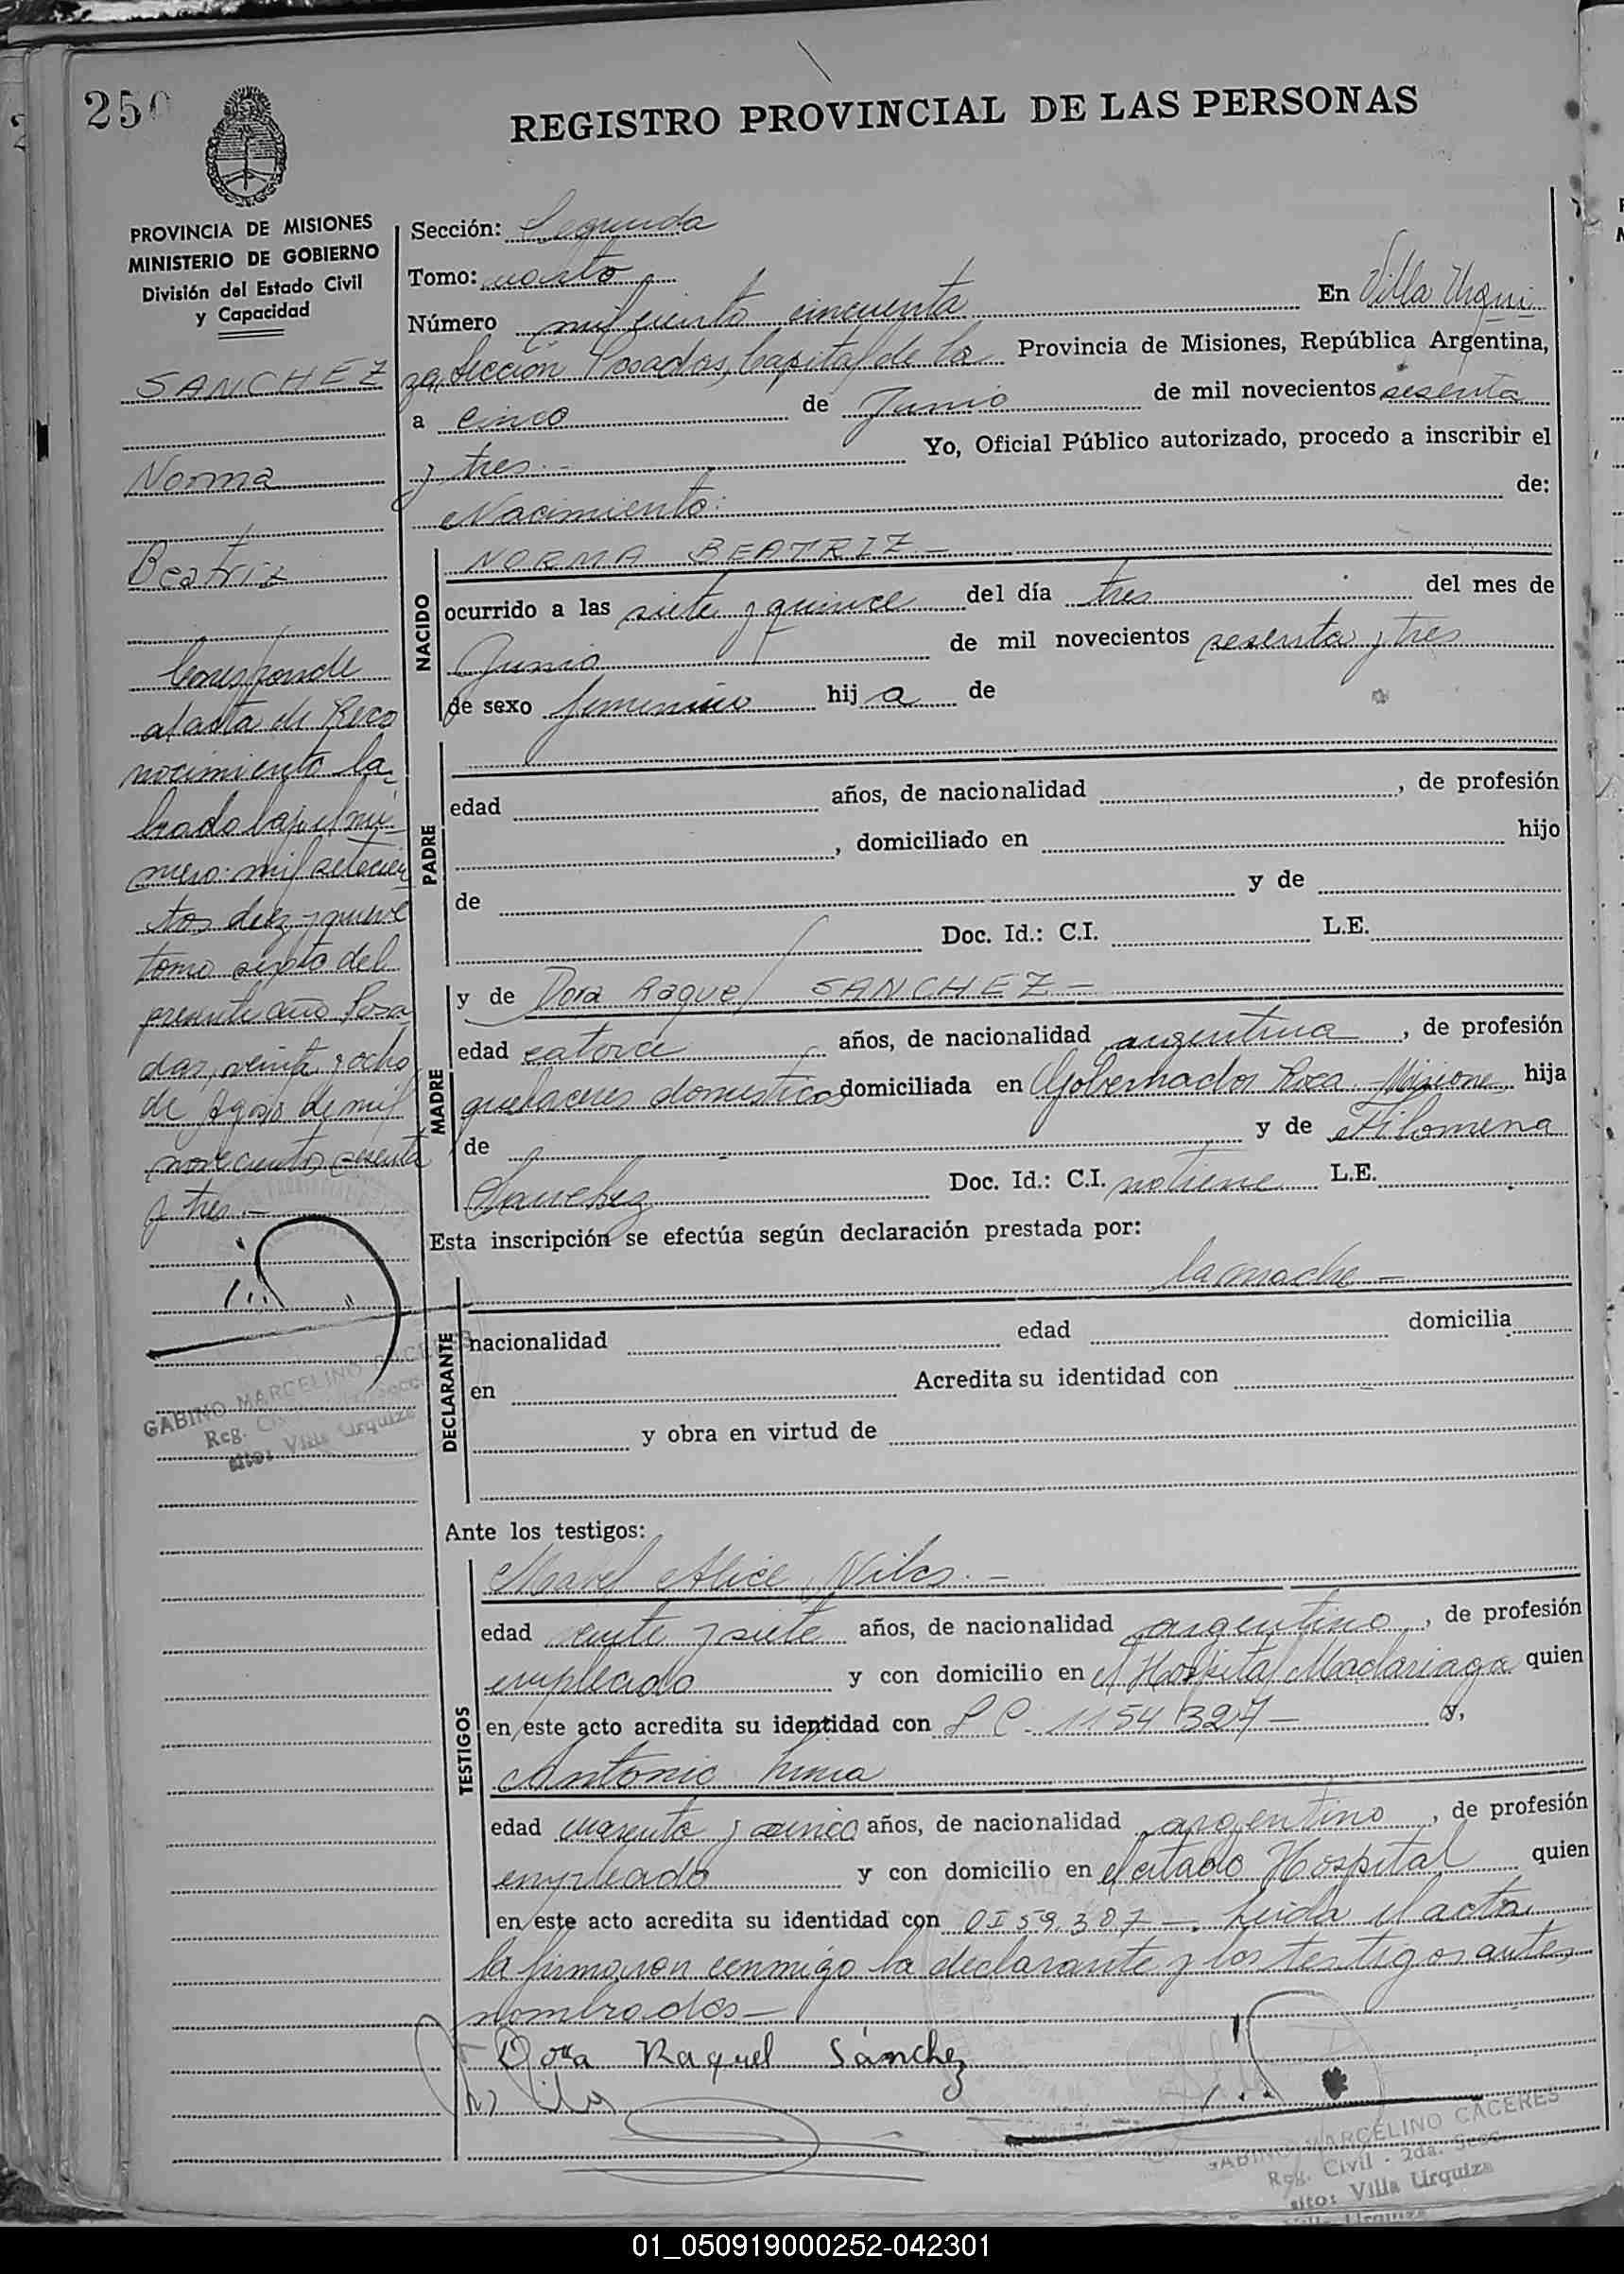 250
REGISTRO PROVINCIAL DE LAS PERSONAS
PROVINCIA DE MISIONES
MINISTERIO DE GOBIERNO
División del Estado Civil
y Capacidad
SANCHEZ
Norma
Beatriz
Corresponde
al acta de Reco
nocimiento la-
brado bajo el nú-
mero: mil setecien
tos diez y nueve
tomo sexto del
presente año Posa
das, veinte y ocho
de Agosto de mil
novecientos sesenta
y tres.-
GABINO MARCELINO CACERES
Reg. Civil
sito: Villa Urquiza
Sección: Segunda
Tomo: cuarto
Número mil ciento cincuenta En Villa Urqui
za, Sección Posadas, Capital de la Provincia de Misiones, República Argentina,
a cinco de Junio de mil novecientos sesenta
y tres.- Yo, Oficial Público autorizado, procedo a inscribir el
Nacimiento: de:
NACIDO
NORMA BEATRIZ -
ocurrido a las siete y quince del día tres del mes de
Junio de mil novecientos sesenta y tres
de sexo femenino hij a de
PADRE
edad años, de nacionalidad , de profesión
, domiciliado en hijo
de y de
Doc. Id.: C.I. L.E.
MADRE
y de Dora Raquel SANCHEZ -
edad catorce años, de nacionalidad argentina , de profesión
quehaceres domesticos domiciliada en Gobernador Roca - Misione hija
de y de Filomena
Sanchez Doc. Id.: C.I. no tiene L.E.
Esta inscripción se efectúa según declaración prestada por:
DECLARANTE
la madre -
nacionalidad edad domicilia
en Acredita su identidad con
y obra en virtud de
Ante los testigos:
TESTIGOS
Alice -
edad veinte y siete años, de nacionalidad argentino , de profesión
empleado y con domicilio en el Hospital Madariaga quien
en este acto acredita su identidad con 1154327 - y,
Antonio
edad cuarenta y cinco años, de nacionalidad argentino , de profesión
empleado y con domicilio en el citado Hospital quien
en este acto acredita su identidad con 59.387 -. Leida el acta
la firmaron conmigo la declarante y los testigos ante,
nombrados -
Dora Raquel Sánchez
GABINO MARCELINO CACERES
Reg. Civil - 2da. Secc.
sito: Villa Urquiza
01_050919000252-042301